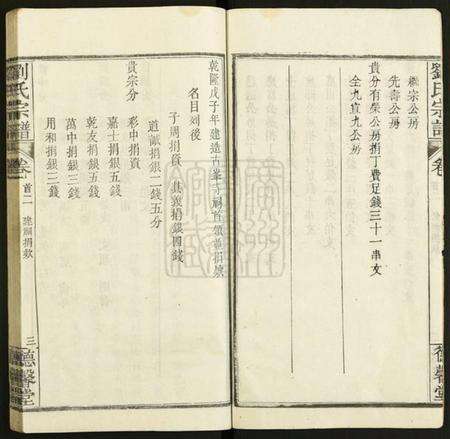 劉氏宗譜
卷
德馨堂
繼宗公房
先壽公房
貴分有榮公房捐丁費足錢三十一串文
全九貞九公房
乾隆戊子年建造古
名目列後
子周捐貲
其義捐銀四錢
道徽捐銀二錢五分
貴宗分
彩中捐資
嘉士捐銀五錢
乾友捐銀五錢
萬中捐銀三錢
用和捐銀三錢
劉氏宗譜
卷
首二
捐款
三
德馨堂